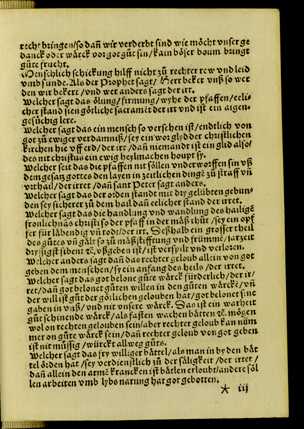 recht bringen / so dañ wir verderbt sind wie möcht unser ge
danck oder wärck vor got gůt sin / kain böser boum bringt
gůte frucht.
Menschlich schickung hilff nicht zů rechter rew und leid
umb sunde. Als der Prophet sagt / Herr beker unß so wer
den wir bekert / und wer anders sagt der irt.
Welcher sagt das ölung / firmung / wyhe der pfaffen / eelis
cher stand sien götliche sacramēt der irt und ist ain eigen
gesůchs lere.
Welcher sagt das ain mensch so versehen ist / endtlich von
got zů ewiger verdamniß / sey ein wor glyd der christlichen
kirchen hie uff erd / der irt / dañ niemandt ist ein glid also /
des nit christus ain ewig heylmachen houpt sy.
Welcher seit das die pfaffen nit söllen underworffen sin uß
dem gesatz gottes den layen in zeitlichen dingē zů straff uñ
urthail / der irret / dañ sant Peter sagt anders.
Welcher sagt das der orden stande mit dry gelübten gebun
den sey sicherer zů dem hail dañ eelicher stand der irret.
Welcher sagt das die handlung und wandlung des hailigē
fronlichnās christi so der pfaff in der mäß thůt / sey ein opf
fer für läbendig uñ todē / der irt. Deßhalb ein grosser theil
des gůtes uñ gält so zů mäß stifftung und frümme / jarzeit
dryssigst sibent &c ußgeben ist / ist verspilt und verloren.
Welcher anders sagt dañ das rechter gloub allein von got
geben dem menschen / sy ein anfang des heils / der irret.
Welcher sagt das got belone gůte wärck fürderlich / der ir-
ret / dañ got belonet gůten willen in den gůten wärckē / uñ
der will ist gůt der götlichen geloubens hat / got belonet sine
gaben in unß / und nit unsere wärck. Das ist ein warheit
gůt schinende wärck / als fasten wachen bätten &c mögen
wol on rechten gelouben sein / aber rechter gloub kan nům
mer on gůte wärck sein / dañ rechter gloub von got geben
ist nit müssig / würckt allweg gůts.
Welcher sagt das fry williger bättel / als man in by den bät
tel ördē hat / sey verdienstlich zů der säligkeit / der irret /
dañ allein den armē krancken ist bätlen erloubt / andere söl
len arbeiten umb lybs narung hat got gebotten.
* iij